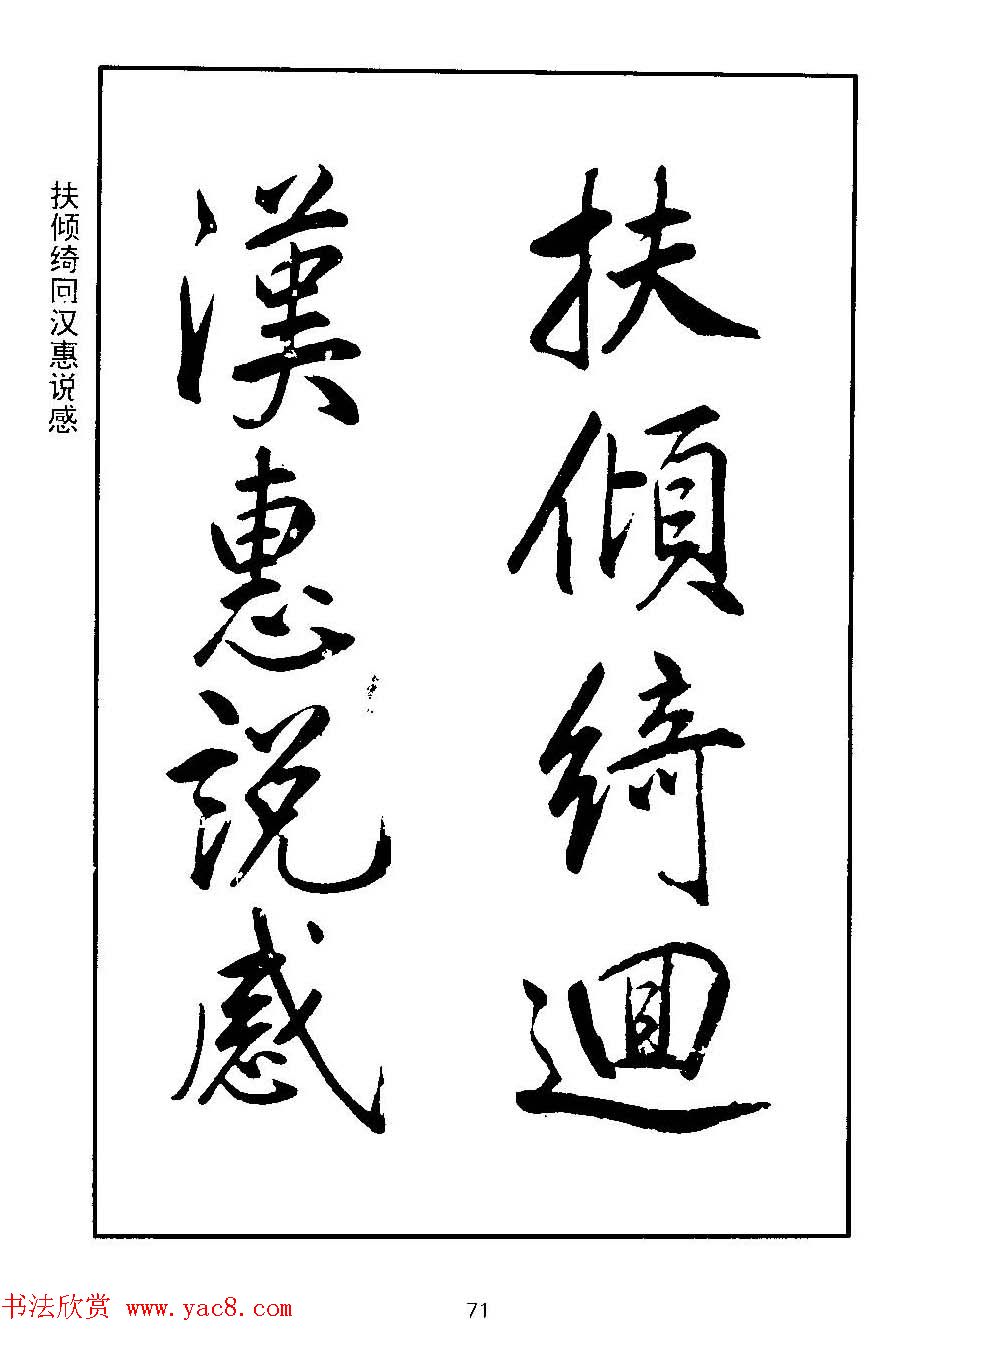 扶傾綺迴
漢惠説感
扶倾绮回汉惠说感
书法欣赏 www.yac8.com
71